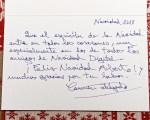 Navidad, 2018
Que el espíritu de la Navidad
entre en todos los corazones, muy
especialmente en los de todos los
amigos de Navidad Digital.
¡Feliz Navidad Alberto! y
muchas gracias por tu labor.